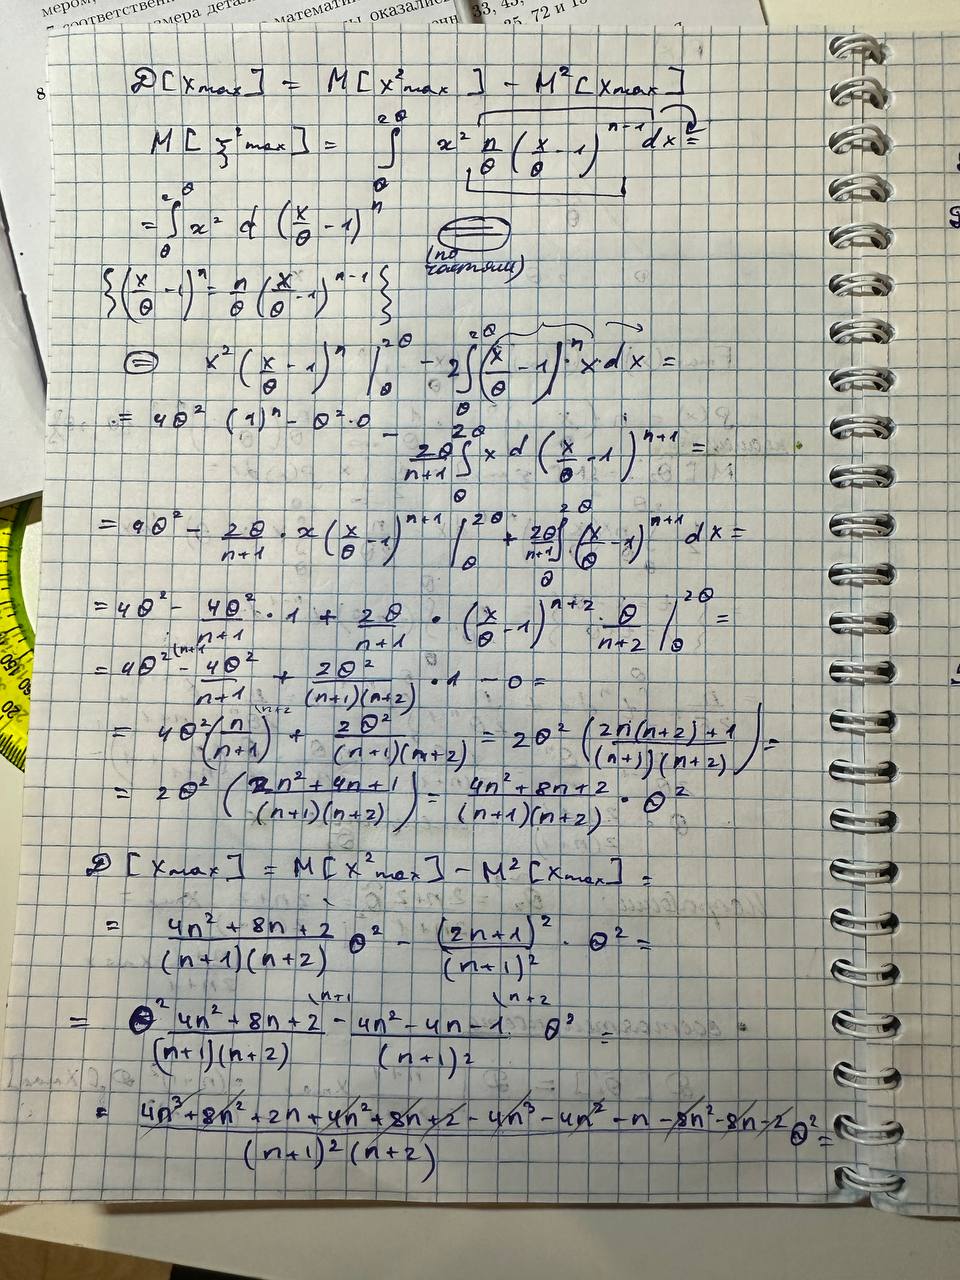 мером,
соответственно
змера детал
математи
ы оказалис
33, 45,
35, 72 и 1
8
D[Xmax] = M[X²max] - M²[Xmax]
M[ξ²max] = ∫_θ^{2θ} x² n/θ (x/θ - 1)^{n-1} dx =
= ∫_θ^{2θ} x² d (x/θ - 1)^n (=)
(по частям)
{(x/θ - 1)^n = n/θ (x/θ - 1)^{n-1}}
(=) x² (x/θ - 1)^n |_θ^{2θ} - 2∫_θ^{2θ} (x/θ - 1)^n · x dx =
= 4θ² (1)^n - θ²·0 - 2θ/(n+1) ∫_θ^{2θ} x d (x/θ - 1)^{n+1} =
= 4θ² - 2θ/(n+1) · x (x/θ - 1)^{n+1} |_θ^{2θ} + 2θ/(n+1) ∫_θ^{2θ} (x/θ - 1)^{n+1} dx =
= 4θ² - 4θ²/(n+1) · 1 + 2θ/(n+1) · (x/θ - 1)^{n+2} · θ/(n+2) |_θ^{2θ} =
= 4θ² \n+1 - 4θ²/(n+1) + 2θ²/((n+1)(n+2)) · 1 - 0 =
= 4θ² (n/(n+1)) \n+2 + 2θ²/((n+1)(n+2)) = 2θ² ((2n(n+2)+1)/((n+1)(n+2))) =
= 2θ² ((2n²+4n+1)/((n+1)(n+2))) = (4n²+8n+2)/((n+1)(n+2)) · θ²
D[Xmax] = M[X²max] - M²[Xmax] =
= (4n²+8n+2)/((n+1)(n+2)) θ² - (2n+1)²/(n+1)² · θ² =
= θ² (4n²+8n+2)/((n+1)(n+2)) \n+1 - (4n²-4n-1)/(n+1)² \n+2 θ² =
= (4n³+8n²+2n+4n²+8n+2-4n³-4n²-n-8n²-8n-2)/((n+1)²(n+2)) θ² =